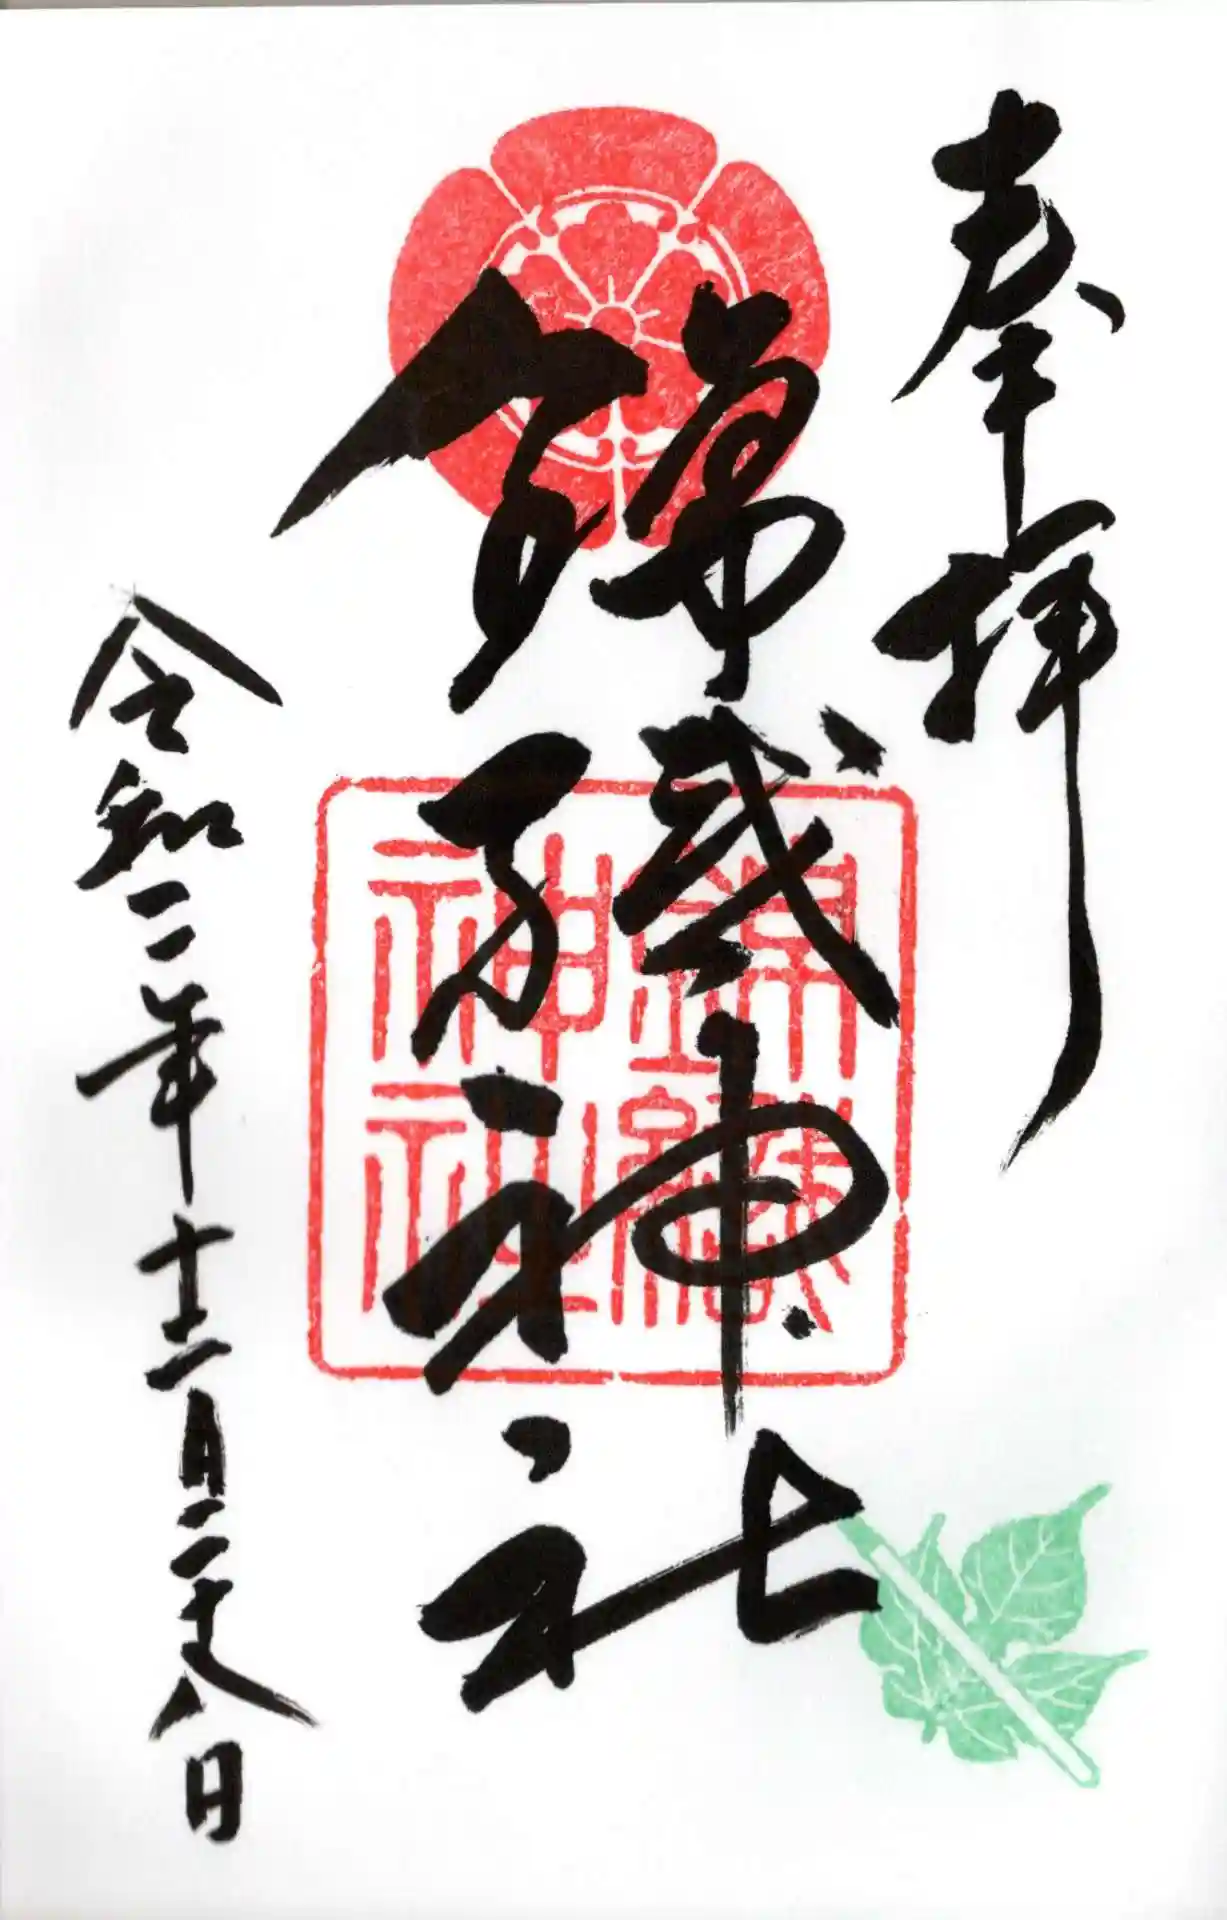 奉拝
錦織神社
錦織神社
令和二年十二月二十八日